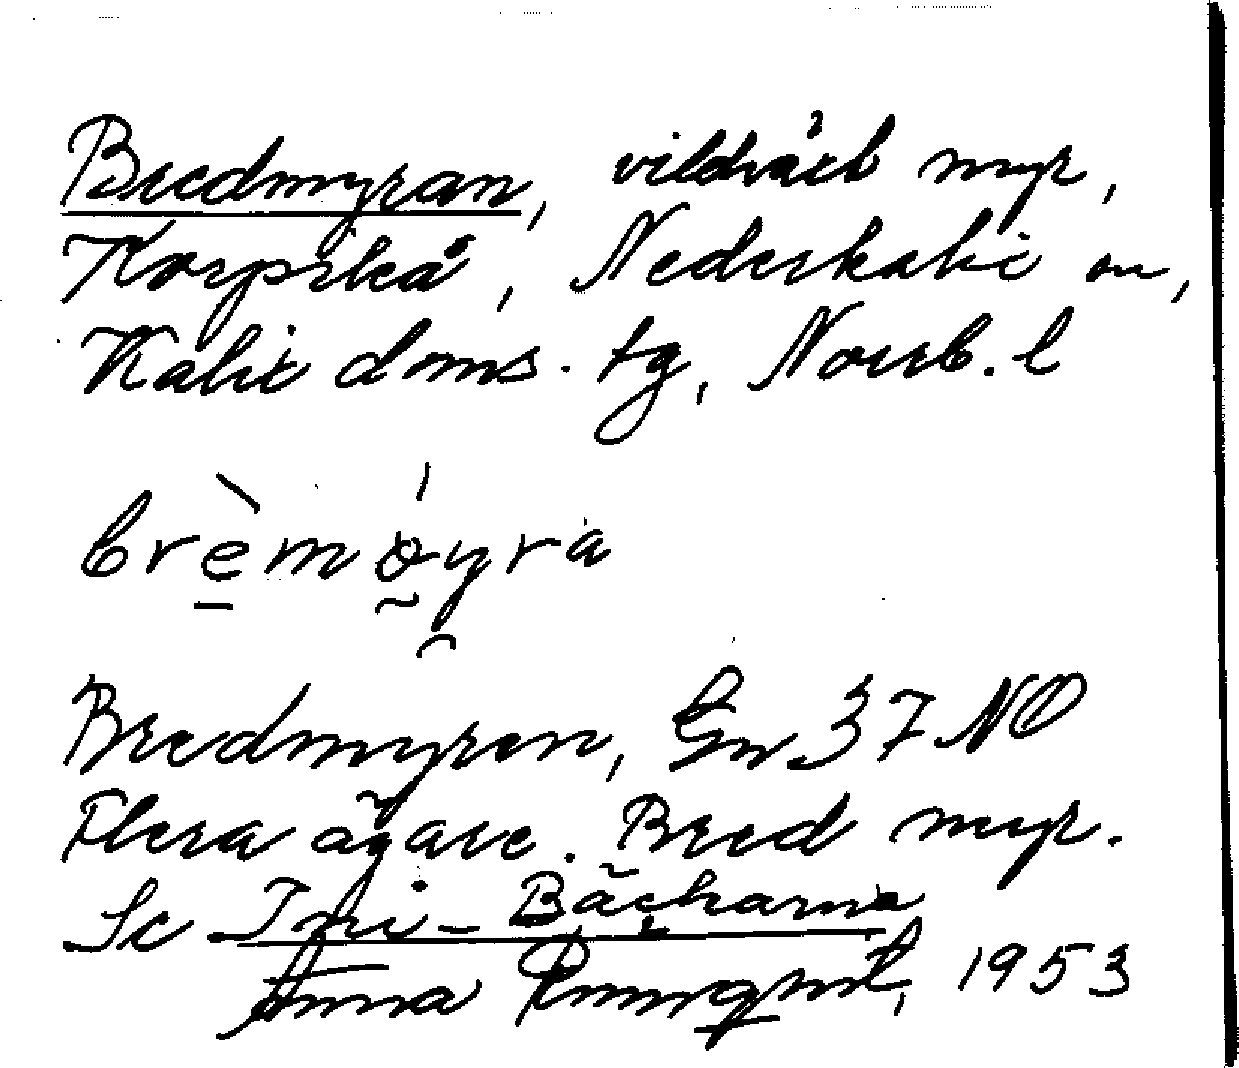 Bredmyran, vildväxt myr,
Korpikå, Nederkalix sn,
Kalix doms. tg, Norrb. l
brèmo̰yra
Bredmyren, Gn 37 NO
Flera ägare. Bred myr.
Se Tri-Bäckarna
Anna Rönnqvist, 1953